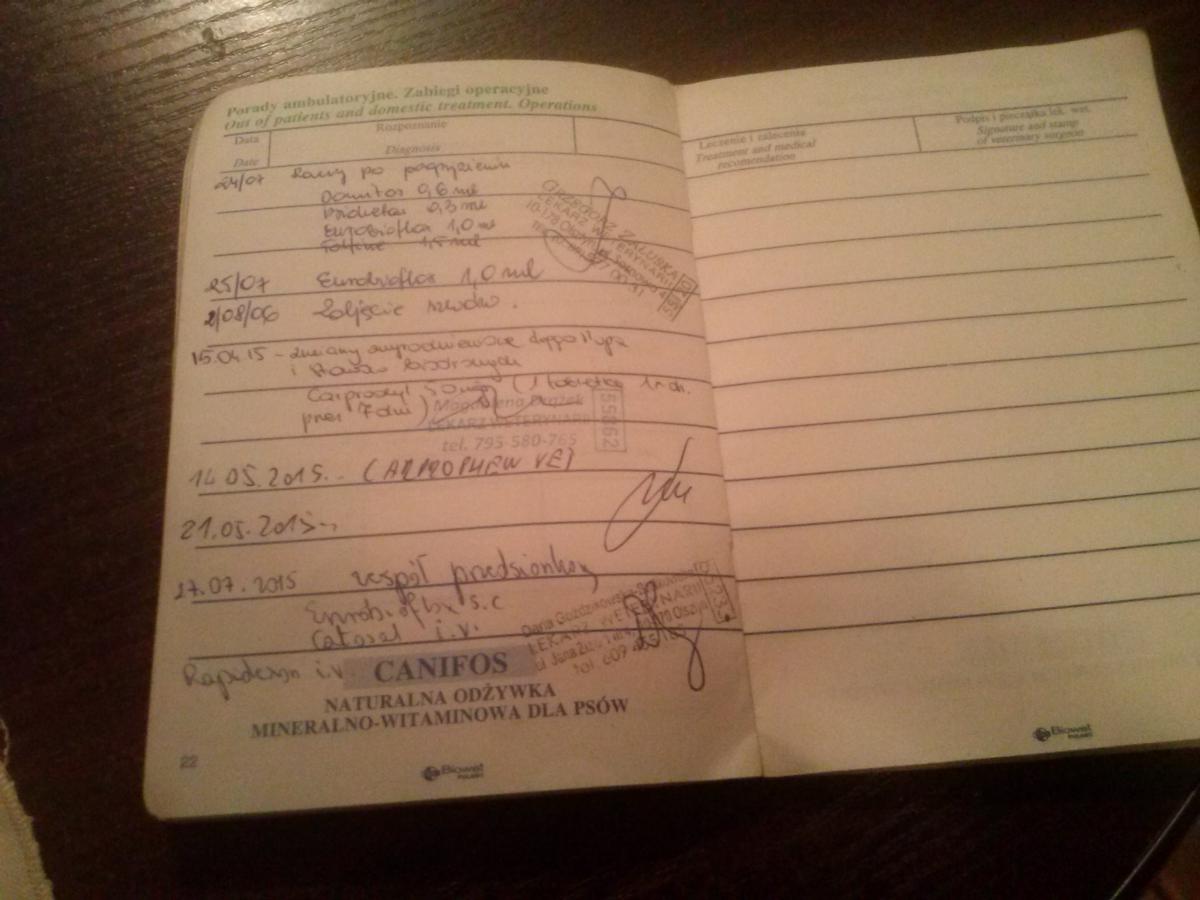 Porady ambulatoryjne. Zabiegi operacyjne
Out of patients and domestic treatment. Operations
Data
Date
Rozpoznanie
Diagnosis
24/07 Rany po pogryzieniu
Domitor 0,6 ml
0,3 ml
Eurobioflox 1,0 ml
1,5 ml
GRZEGORZ ZAŁUSKA
LEKARZ WETERYNARII
25/07 Eurobioflox 1,0 ml
2/08/06 Zdjęcie szwów.
15.04.15 - zmiany zwyrodnieniowe
i stawów biodrowych
Carprodyl 50 mg (1 tabletka 1x dz.
przez 7 dni)
Magdalena
LEKARZ WETERYNARII
tel. 795-580-765
55862
14.05.2015.. (ARPROPHEN VET
21.05.2015..
27.07.2015 zespół przedsionkowy
Enrobioflox s.c
Catosal i.v.
Rapidexon i.v.
Daria
LEKARZ WETERYNARII
CANIFOS
NATURALNA ODŻYWKA
MINERALNO-WITAMINOWA DLA PSÓW
22
Biowet
PUŁAWY
Leczenie i zalecenia
Treatment and medical
recomendation
Podpis i pieczątka lek. wet.
Signature and stamp
of veterinary surgeon
Biowet
PUŁAWY